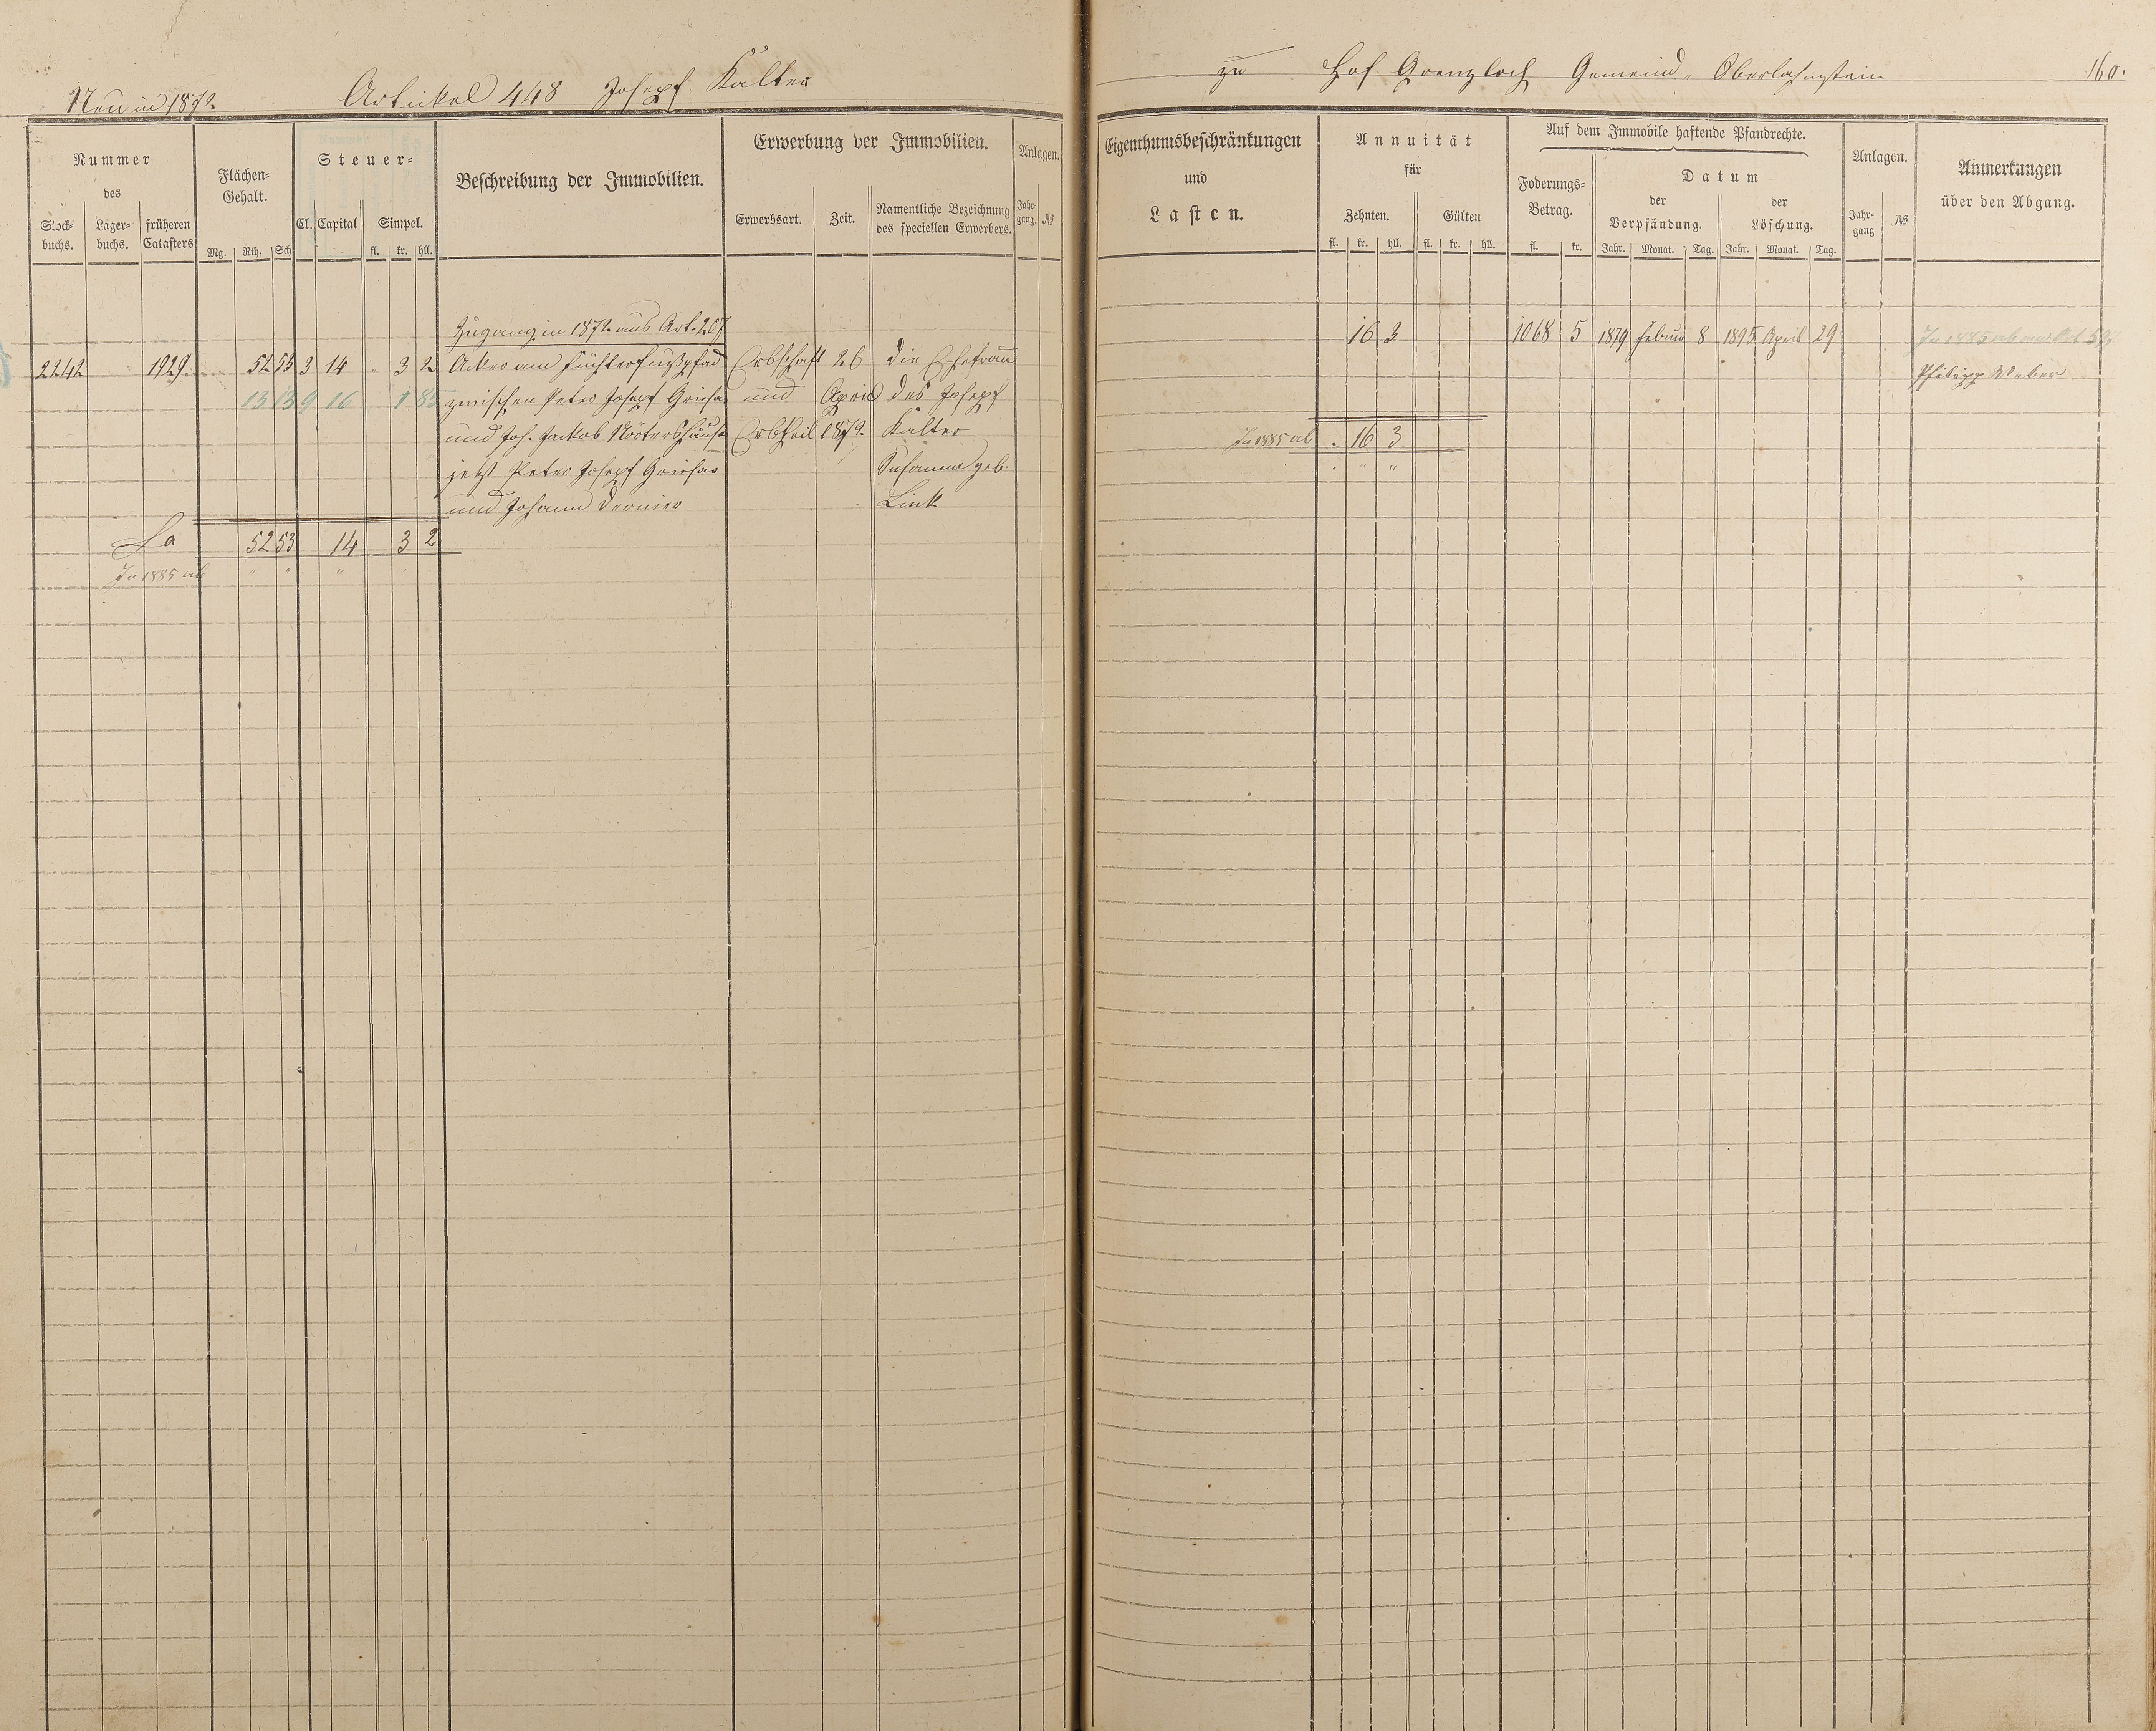 Neu in 1872. Artikel 448 Josepf Kalter
zu Hof Grenzloch Gemeind Oberlahnstein 160.
Nummer
des
Stock-
buchs.
Lager-
buchs.
früheren
Catasters
Flächen-
Gehalt.
Mg. Rth. Sch
Steuer-
Cl. Capital Simpel.
fl. kr. hll.
Beschreibung der Immobilien.
Erwerbung der Immobilien.
Erwerbsart. Zeit. Namentliche Bezeichnung
des speciellen Erwerbers.
Anlagen.
Jahr-
gang. №
Eigenthumsbeschränkungen
und
Lasten.
Annuität
für
Zehnten. Gülten
fl. kr. hll. fl. kr. hll.
Auf dem Immobile haftende Pfandrechte.
Foderungs-
Betrag.
fl. kr.
Datum
der
Verpfändung.
der
Löschung.
Jahr. Monat. Tag. Jahr. Monat. Tag.
Anlagen.
Jahr-
gang №
Anmerkungen
über den Abgang.
Zugang in 1872 aus Art. 267
2242 1929 52 53 3 14 3 2 Acker am
Erbschaft 26 die Ehefrau
13 13 9 16 1 85 zwischen Peter Josepf
und April des Josepf
und Joh. Jackob
Erbtheil 1872. Kalter
jetzt Peter Josepf
Susanna geb.
und Johann
Link
La 52 53 14 3 2
In 1885 ab " " "
16 3 1068 5 1879 Februar 8 1895 April 29
In 1885 ab
Philipp Weber
In 1885 ab . 16 3
" " "